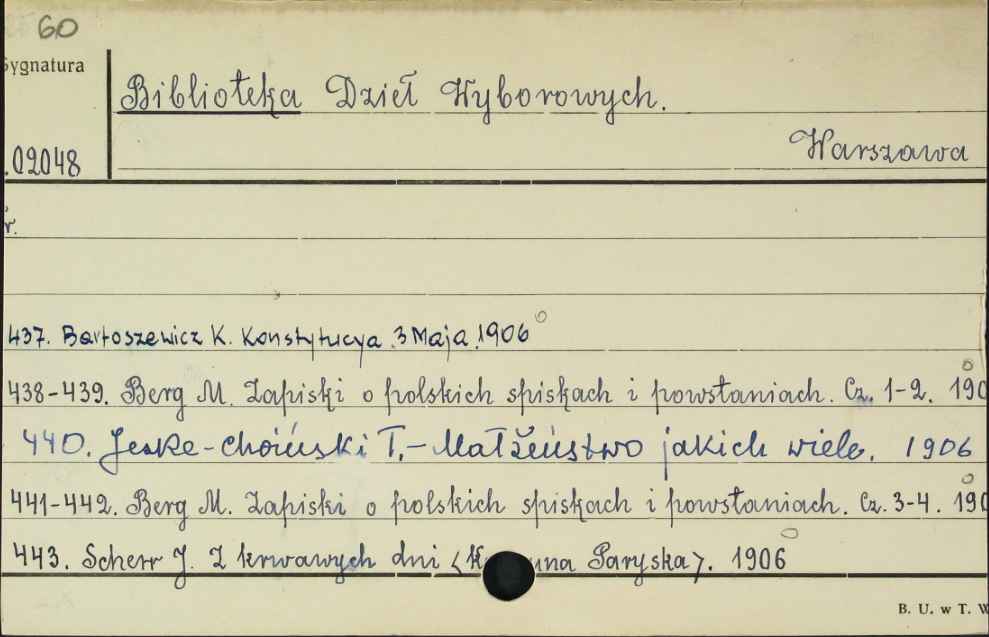 60
Sygnatura
Biblioteka Dzieł Wyborowych.
.02048
Warszawa
r.
437. Bartoszewicz K. Konstytucya 3 Maja. 1906
438-439. Berg M. Zapiski o polskich spiskach i powstaniach. Cz. 1-2. 190
440. Jeske-Choiński T. - Małżeństwo jakich wiele. 1906
441-442. Berg M. Zapiski o polskich spiskach i powstaniach. Cz. 3-4. 190
443. Scherr J. Z krwawych dni < Paryska>. 1906
B. U. w T. W